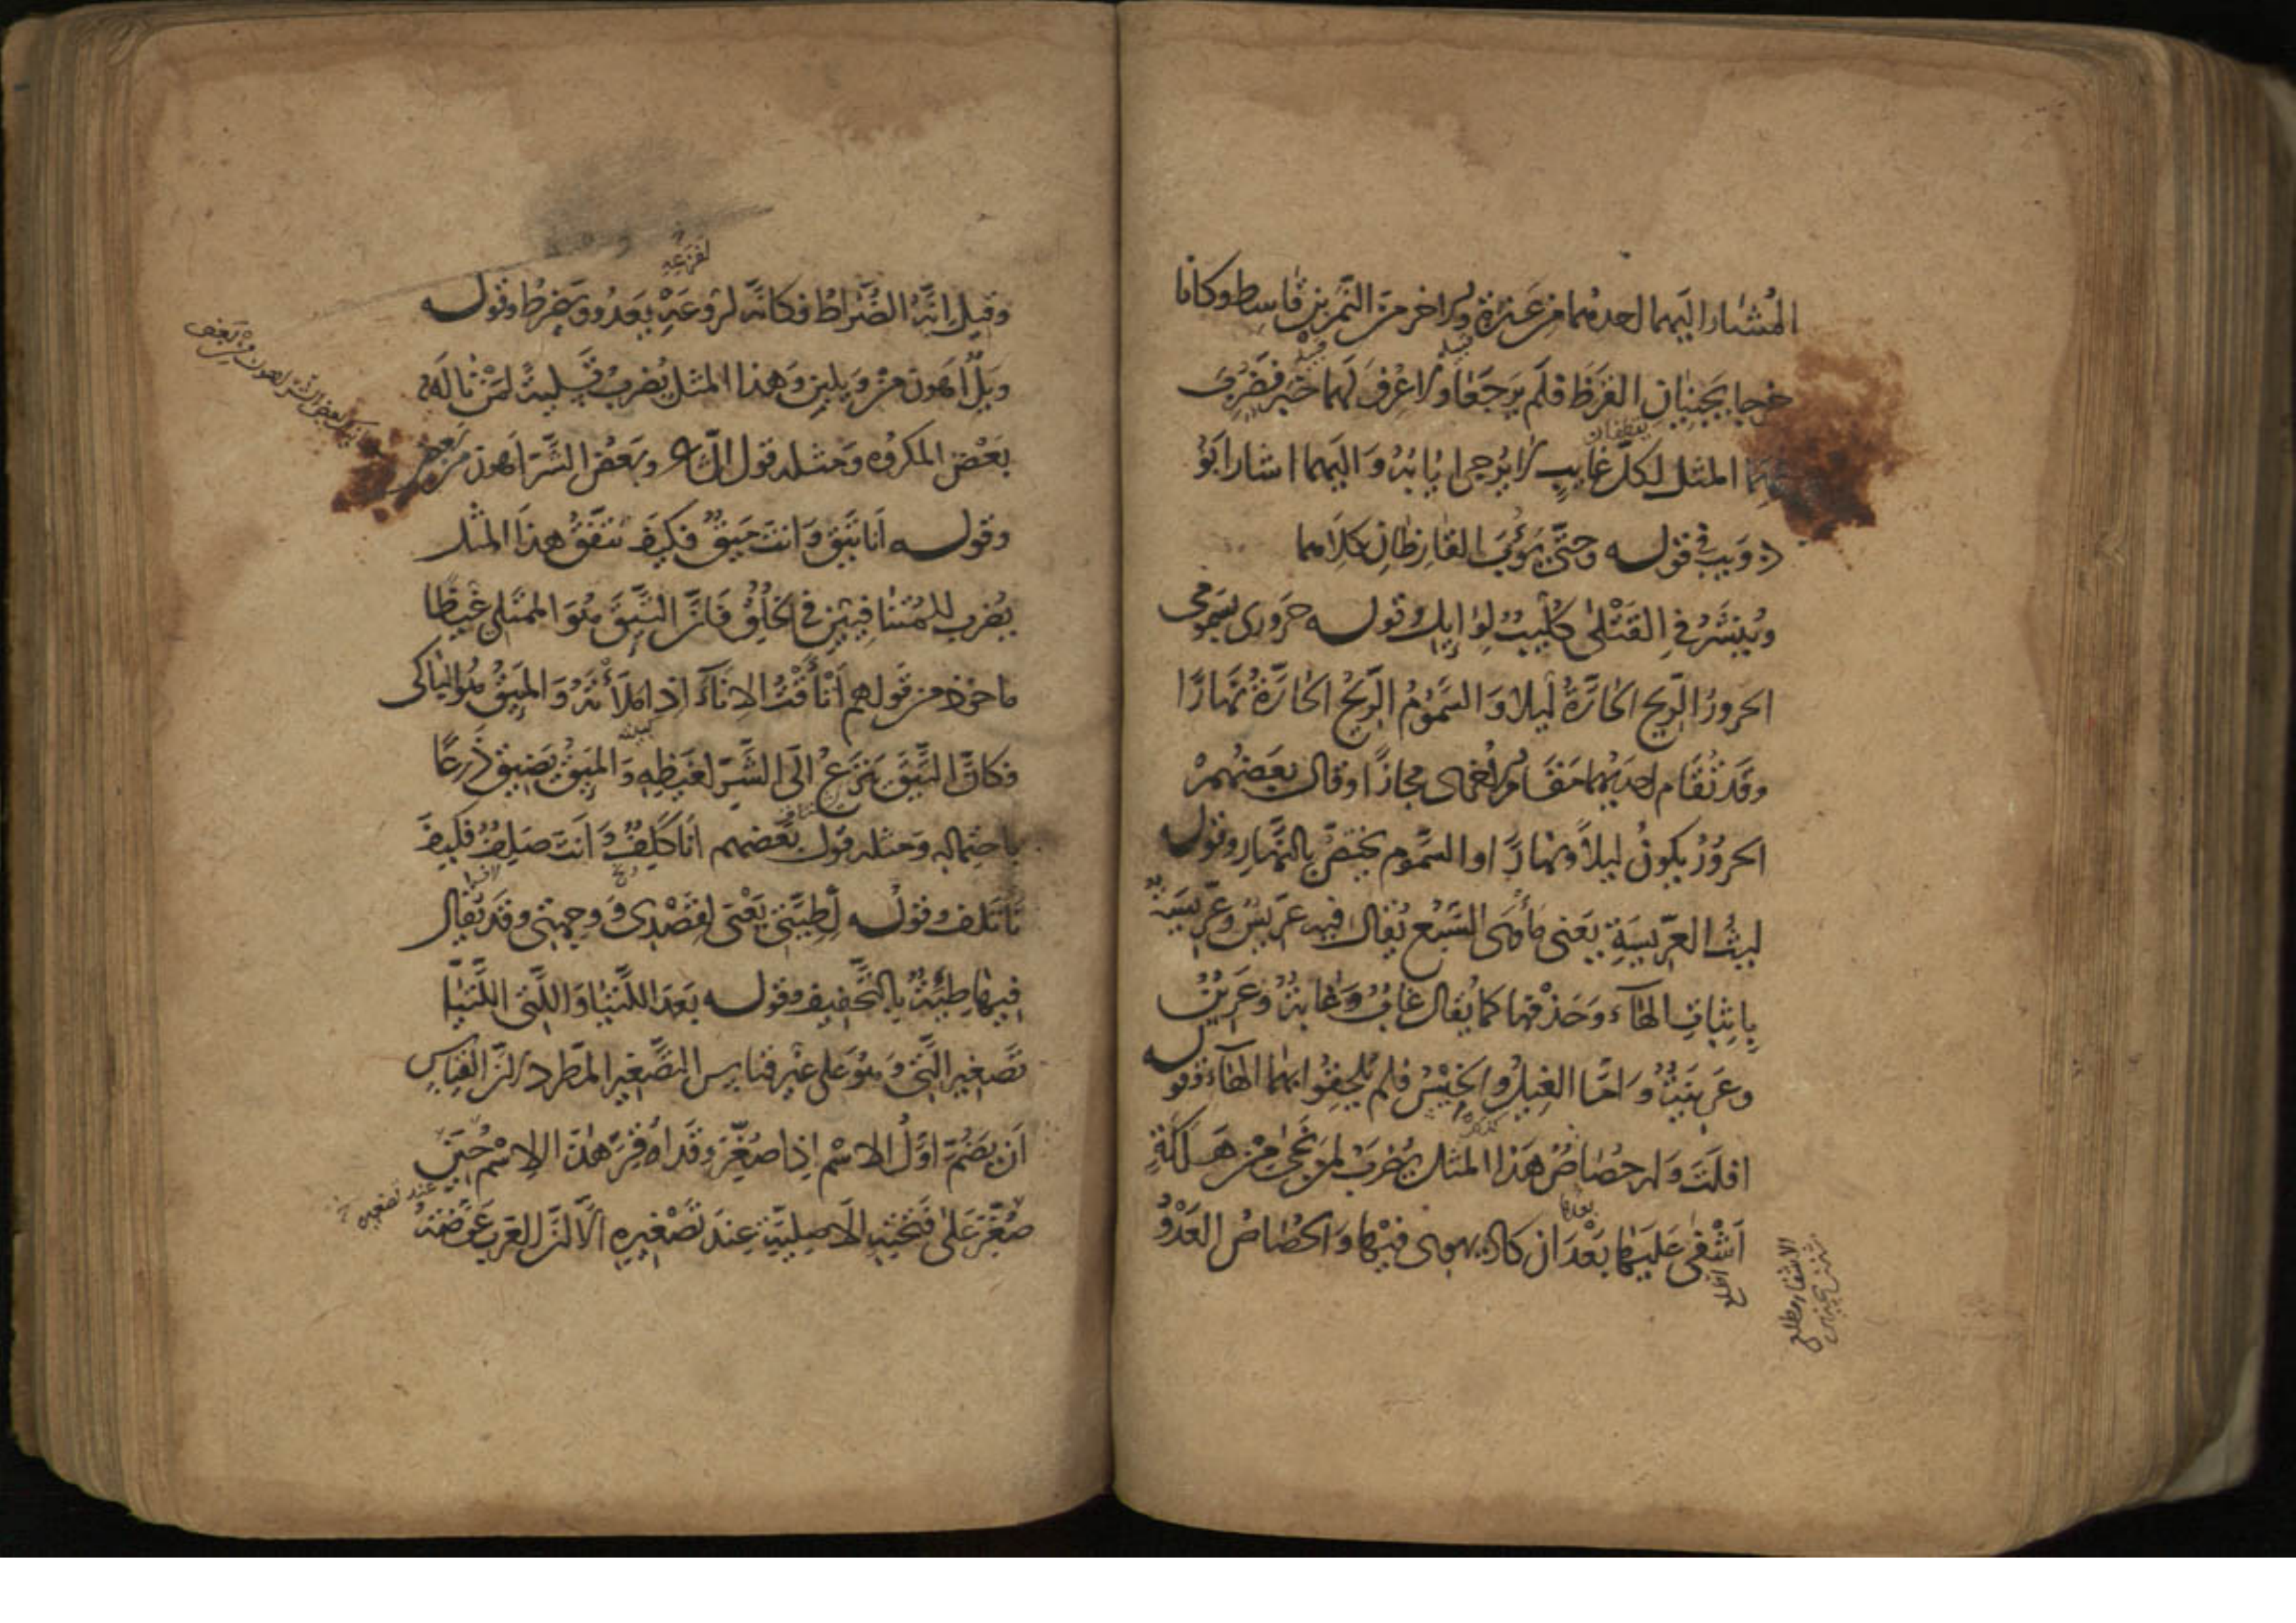 المُشارِ اليهما احدهما من عَنزة والاخر من النَّمِر بن قاسط وكانا
خرجا يجنيان القَرَظَ فلم يرجعا ولا عُرِفَ لهما خبر فضُرِبَ
يقطفان
بهما المثل لكلّ غايبٍ لا يُرجى ايابُهُ واليهما اشار ابو
ذويب في قوله وحتّى يؤوبَ القارظانِ كلاهما
ويُنشَرُ في القَتْلى كُلَيبٌ لوايل وقوله حَروري سَمومى
الحرورُ الرّيح الحارَّةُ ليلا والسَّمُومُ الرّيحُ الحارَّةُ نهارًا
وقد تُقام احديهما مَقام الاخرى مجازًا وقال بعضهم
الحَرُورُ يكونُ ليلاً ونهارًا والسَّموم يختصّ بالنَّهارِ وقوله
ليثُ العِرّيسةِ يعنى مأوى السَّبُع يُقال فيه عرّيس وعرّيسة
باثباتِ الهاء وحذفها كما يُقال غابٌ وغابةٌ وعرينٌ
وعرينةٌ وامّا الغِيلُ والخِيْسُ فلم يُلحِقُوا بهما الهاء وقوله
افلتَ وله حُصاصٌ هذا المثل يُضرَبُ لمن نجى من هَلَكةٍ
اشفى عليها بعدَ ان كاد يهوى فيها والحُصاصُ العَدْوُ
وقيل انّهُ الضُّراطُ فكانّه لروعَتِه يعدُو ويضرطُ وقوله
ويلٌ اهون من ويلين وهذا المثل يُضرب تسليةً لمن ناله
بعضُ المكروه ومثله قول الشاعر وبعضُ الشَّرّ اهون من بعض
وقوله انا تَئِق وانت مَئِقٌ فكيف نتّفقُ هذا المثل
يُضرب للمُتنافِيَين في الخُلُق فانّ التَّئِقَ هُوَ الممتلى غيظًا
ماخوذ من قولهم اتْأَقْتُ الاناءَ اذا ملأتَهُ والمَئِقُ هُوَ الباكى
فكانّ التَّئِقَ ينزعُ الى الشَّرّ لغيظِه والمَئِقُ يضيق ذَرعًا
باحتماله ومثله قول بعضهم انا كَلِفٌ وانت صَلِفٌ فكيف
نأتلف وقوله لِطِيَّتى يَعْنى لقصدى ووجهتى وقد يُقال
فيها طِيَةٌ بالتَّخفيف وقوله بعد اللَّتَيَّا والَّتى اللَّتَيَّا
تصغير الَّتى وهو على غير قياس التصغير المطّرد لانّ القياس
ان يُضمّ اوّلُ الاسم اذا صُغِّرَ وقد اُقِرَّ هذا الاسم حين
عند تصغيره
صُغِّرَ على فتحتِه الاصليّة عند تصغيره الّا انّ العرب عوّضَتهُ